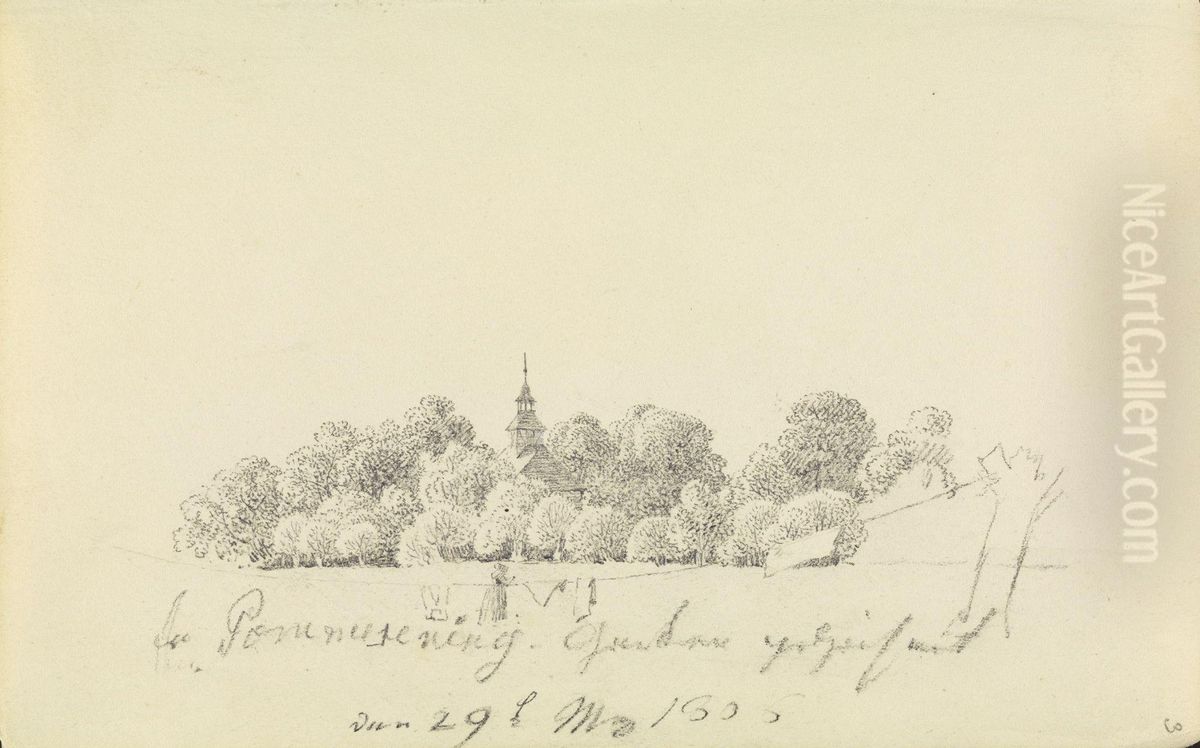 Pommerening. Garten gezeichnet
den 29t May 1806
NiceArtGallery.com
3